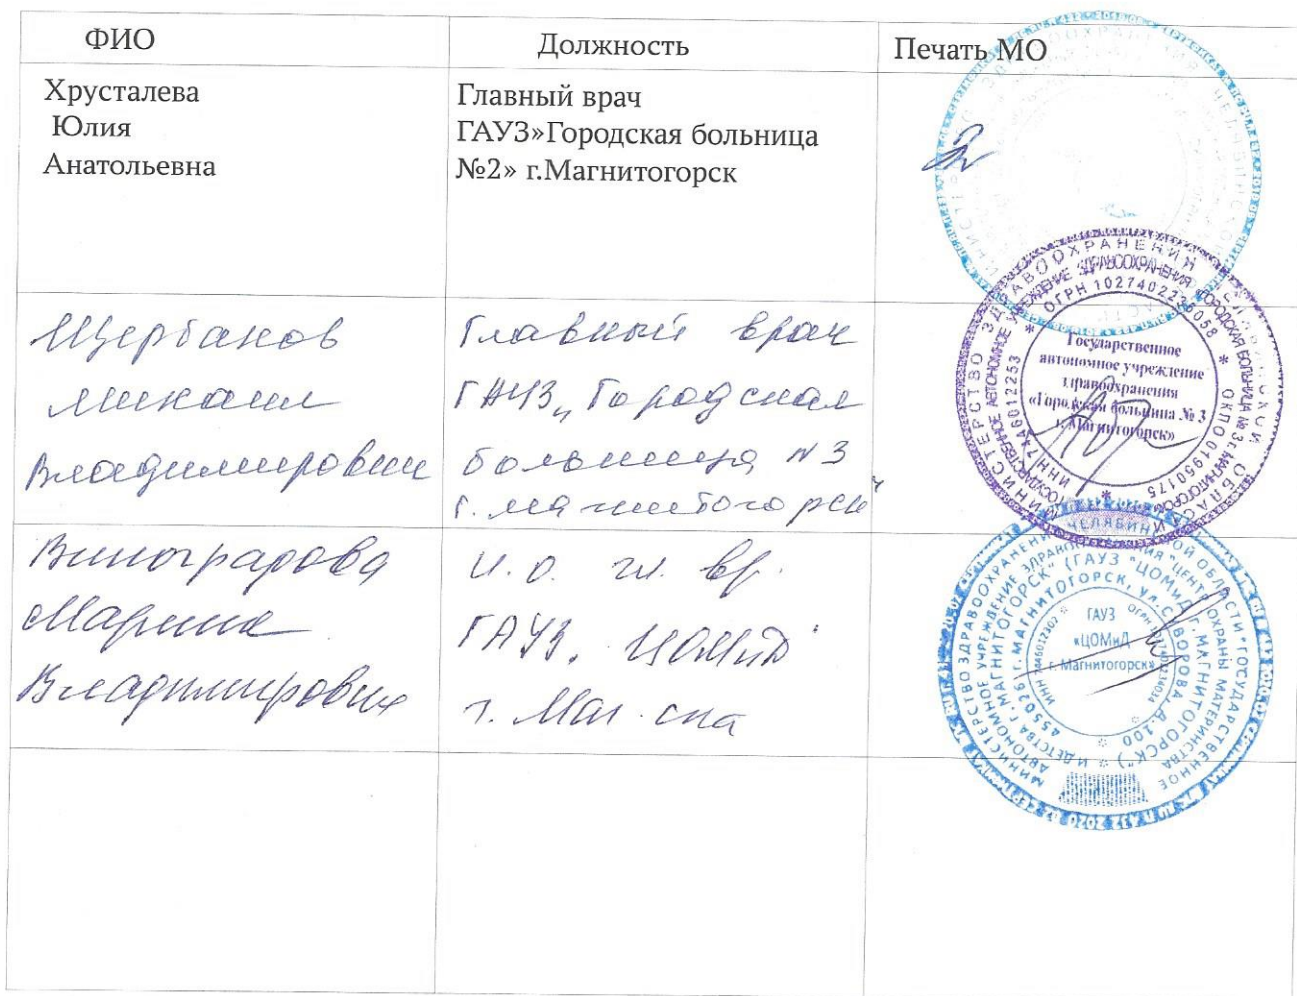 ФИО
Должность
Печать МО
Хрусталева
Юлия
Анатольевна
Главный врач
ГАУЗ»Городская больница
№2» г.Магнитогорск
Щербаков
Михаил
Владимирович
Главный врач
ГАУЗ „Городская
больница №3
г. Магнитогорск"
МИНИСТЕРСТВО ЗДРАВООХРАНЕНИЯ ЧЕЛЯБИНСКОЙ ОБЛАСТИ
ГОСУДАРСТВЕННОЕ АВТОНОМНОЕ УЧРЕЖДЕНИЕ ЗДРАВООХРАНЕНИЯ «ГОРОДСКАЯ БОЛЬНИЦА № 3 г. МАГНИТОГОРСК»
ОГРН 1027402235058 * ОКПО 01950175 * ИНН 7446012253 *
Государственное
автономное учреждение
здравоохранения
«Городская больница № 3
г. Магнитогорск»
Виноградова
Марина
Владимировна
И.О. гл. вр.
ГАУЗ „ЦОМиД"
г. Маг-ска
МИНИСТЕРСТВО ЗДРАВООХРАНЕНИЯ ЧЕЛЯБИНСКОЙ ОБЛАСТИ * ГОСУДАРСТВЕННОЕ
АВТОНОМНОЕ УЧРЕЖДЕНИЕ ЗДРАВООХРАНЕНИЯ "ЦЕНТР ОХРАНЫ МАТЕРИНСТВА
И ДЕТСТВА Г.МАГНИТОГОРСК" (ГАУЗ "ЦОМиД Г.МАГНИТОГОРСК")
455026, г. МАГНИТОГОРСК, ул. СУВОРОВА, Д.100
ГАУЗ
«ЦОМиД
г. Магнитогорск»